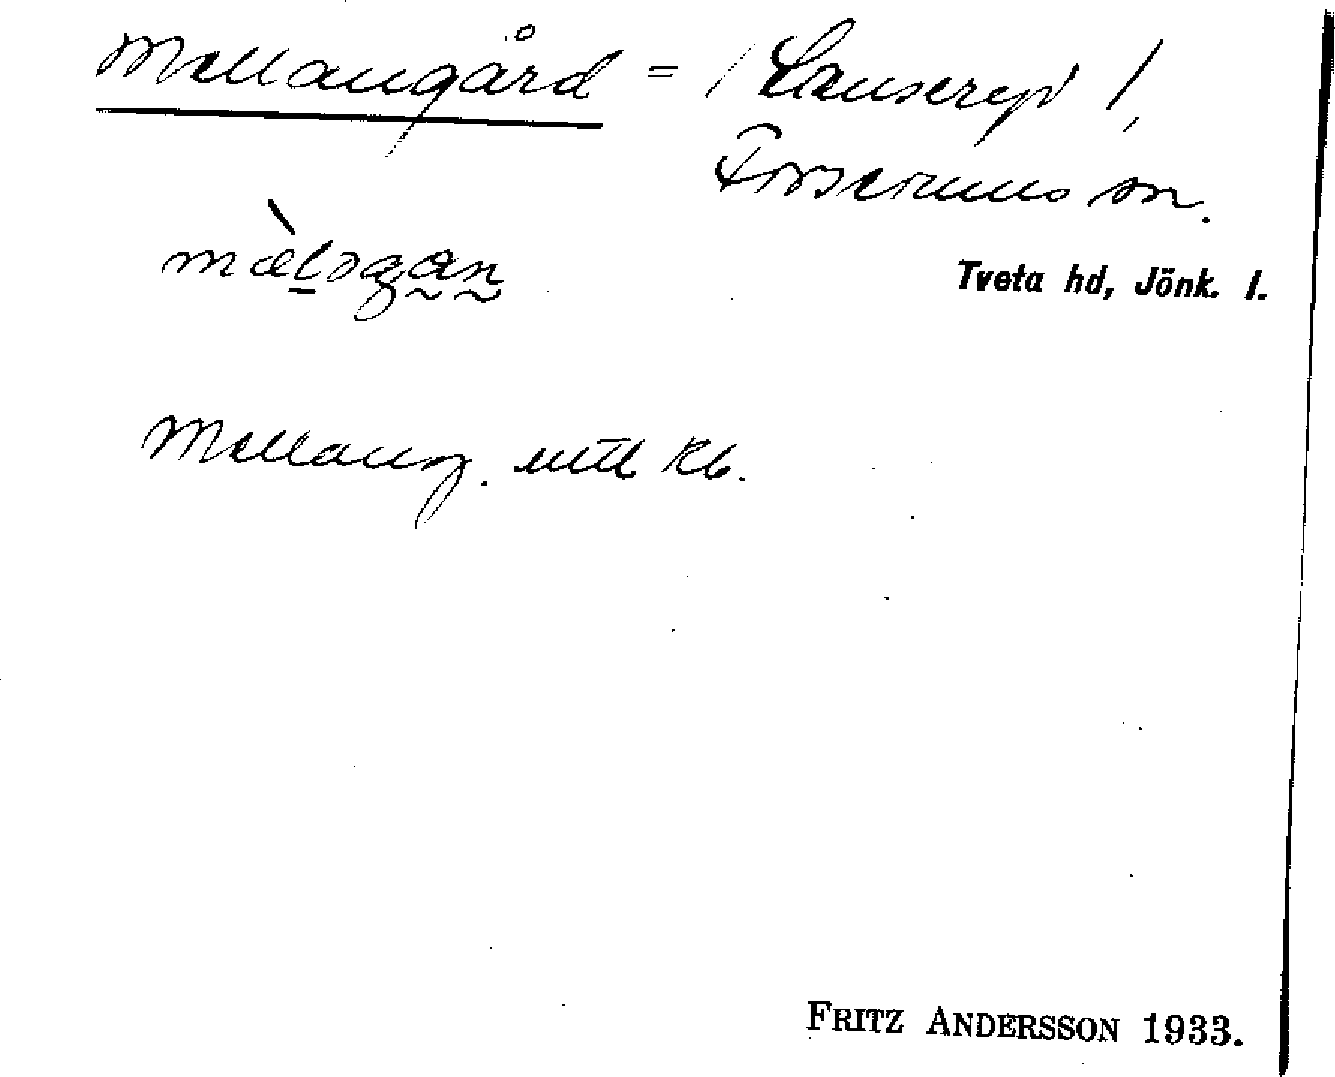 Mellangård = / Lanseryd /,
Forserums sn.
mæ̀lɔgan
Tveta hd, Jönk. l.
Mellang. utt Kb.
FRITZ ANDERSSON 1933.